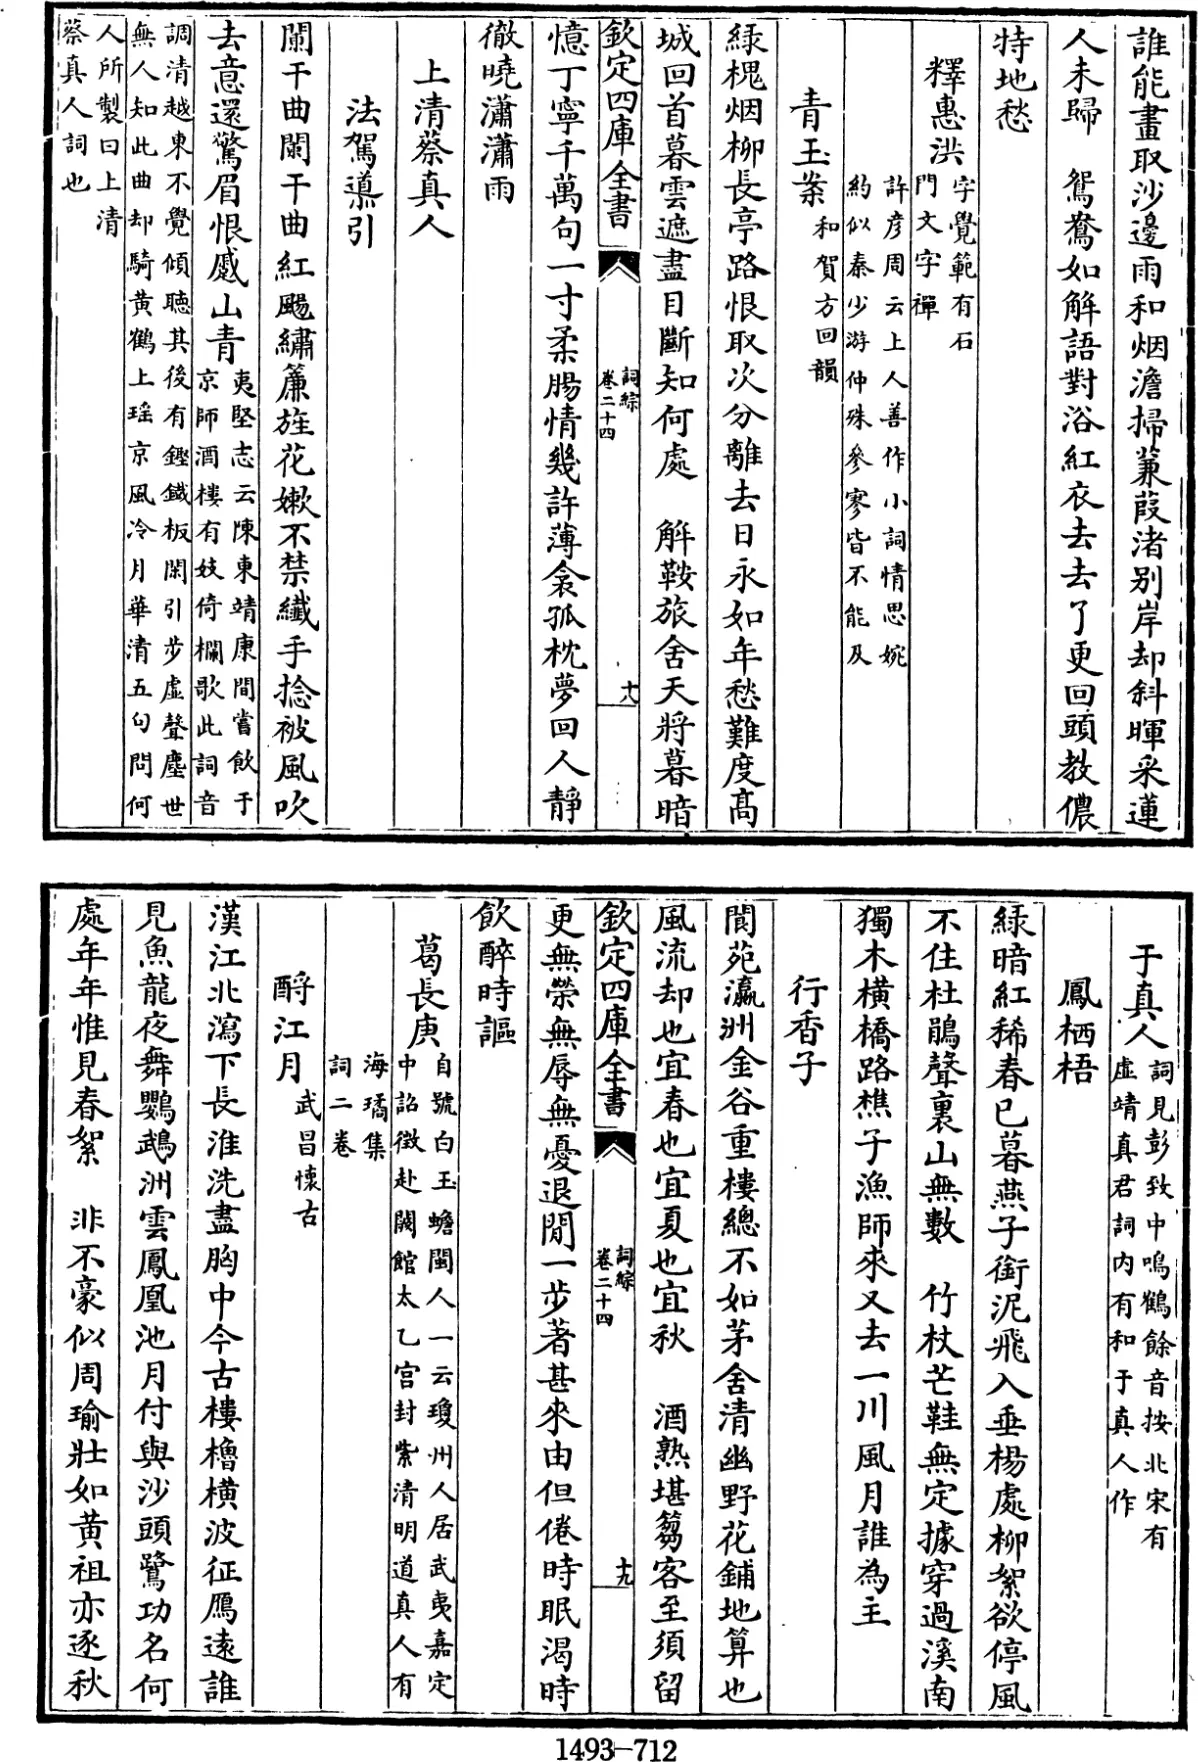 誰能畫取沙邊雨和烟澹掃蒹葭渚别岸却斜暉采蓮
人未歸　鴛鴦如解語對浴紅衣去去了更回頭教儂
特地愁
釋惠洪
字覺範有石
門文字禪
許彦周云上人善作小詞情思婉
約似秦少游仲殊參寥皆不能及
青玉案
和賀方回韻
緑槐烟柳長亭路恨取次分離去日永如年愁難度髙
城回首暮雲遮盡目斷知何處　解鞍旅舍天將暮暗
欽定四庫全書
詞綜
卷二十四
十八
憶丁寧千萬句一寸柔腸情幾許薄衾孤枕夢回人靜
徹曉瀟瀟雨
上清蔡真人
法駕導引
闌干曲闌干曲紅颺繡簾旌花嫰不禁纎手捻被風吹
去意還驚眉恨蹙山青
夷堅志云陳東靖康間嘗飲于
京師酒樓有妓倚欄歌此詞音
調清越東不覺傾聽其後有鏗鐵板閑引步虚聲塵世
無人知此曲却騎黄鶴上瑶京風冷月華清五句問何
人所製曰上清
蔡真人詞也
于真人
詞見彭致中鳴鶴餘音按北宋有
虚靖真君詞内有和于真人作
鳳栖梧
緑暗紅稀春已暮燕子銜泥飛入垂楊處柳絮欲停風
不住杜鵑聲裏山無數　竹杖芒鞋無定據穿過溪南
獨木橫橋路樵子漁師來又去一川風月誰為主
行香子
閬苑瀛洲金谷重樓總不如茅舍清幽野花鋪地算也
風流却也宜春也宜夏也宜秋　酒熟堪篘客至須留
欽定四庫全書
詞綜
卷二十四
十九
更無榮無辱無憂退閒一步著甚來由但倦時眠渴時
飲醉時謳
葛長庚
自號白玉蟾閩人一云瓊州人居武夷嘉定
中詔徴赴闕館太乙宫封紫清明道真人有
海璚集
詞二卷
酹江月
武昌懷古
漢江北瀉下長淮洗盡胸中今古樓櫓横波征鴈遠誰
見魚龍夜舞鸚鵡洲雲鳳凰池月付與沙頭鷺功名何
處年年惟見春絮　非不豪似周瑜壯如黄祖亦逐秋
1493-712